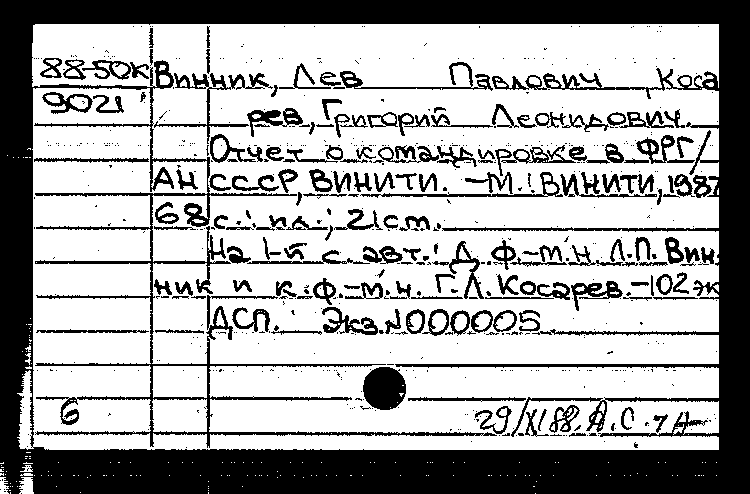 88-50к Винник, Лев Павлович, Коса
9021 рев, Григорий Леонидович.
Отчет о командировке в ФРГ/
АН СССР, ВИНИТИ. -М.: ВИНИТИ, 1987
68 с.: ил.; 21 см.
На 1-й с. авт.: Д. ф.-м.н. Л.П. Вин-
ник и к.ф.-м.н. Г.Л. Косарев.-102 эк
ДСП. Экз. N000005
6
29/XI 88. А.С.